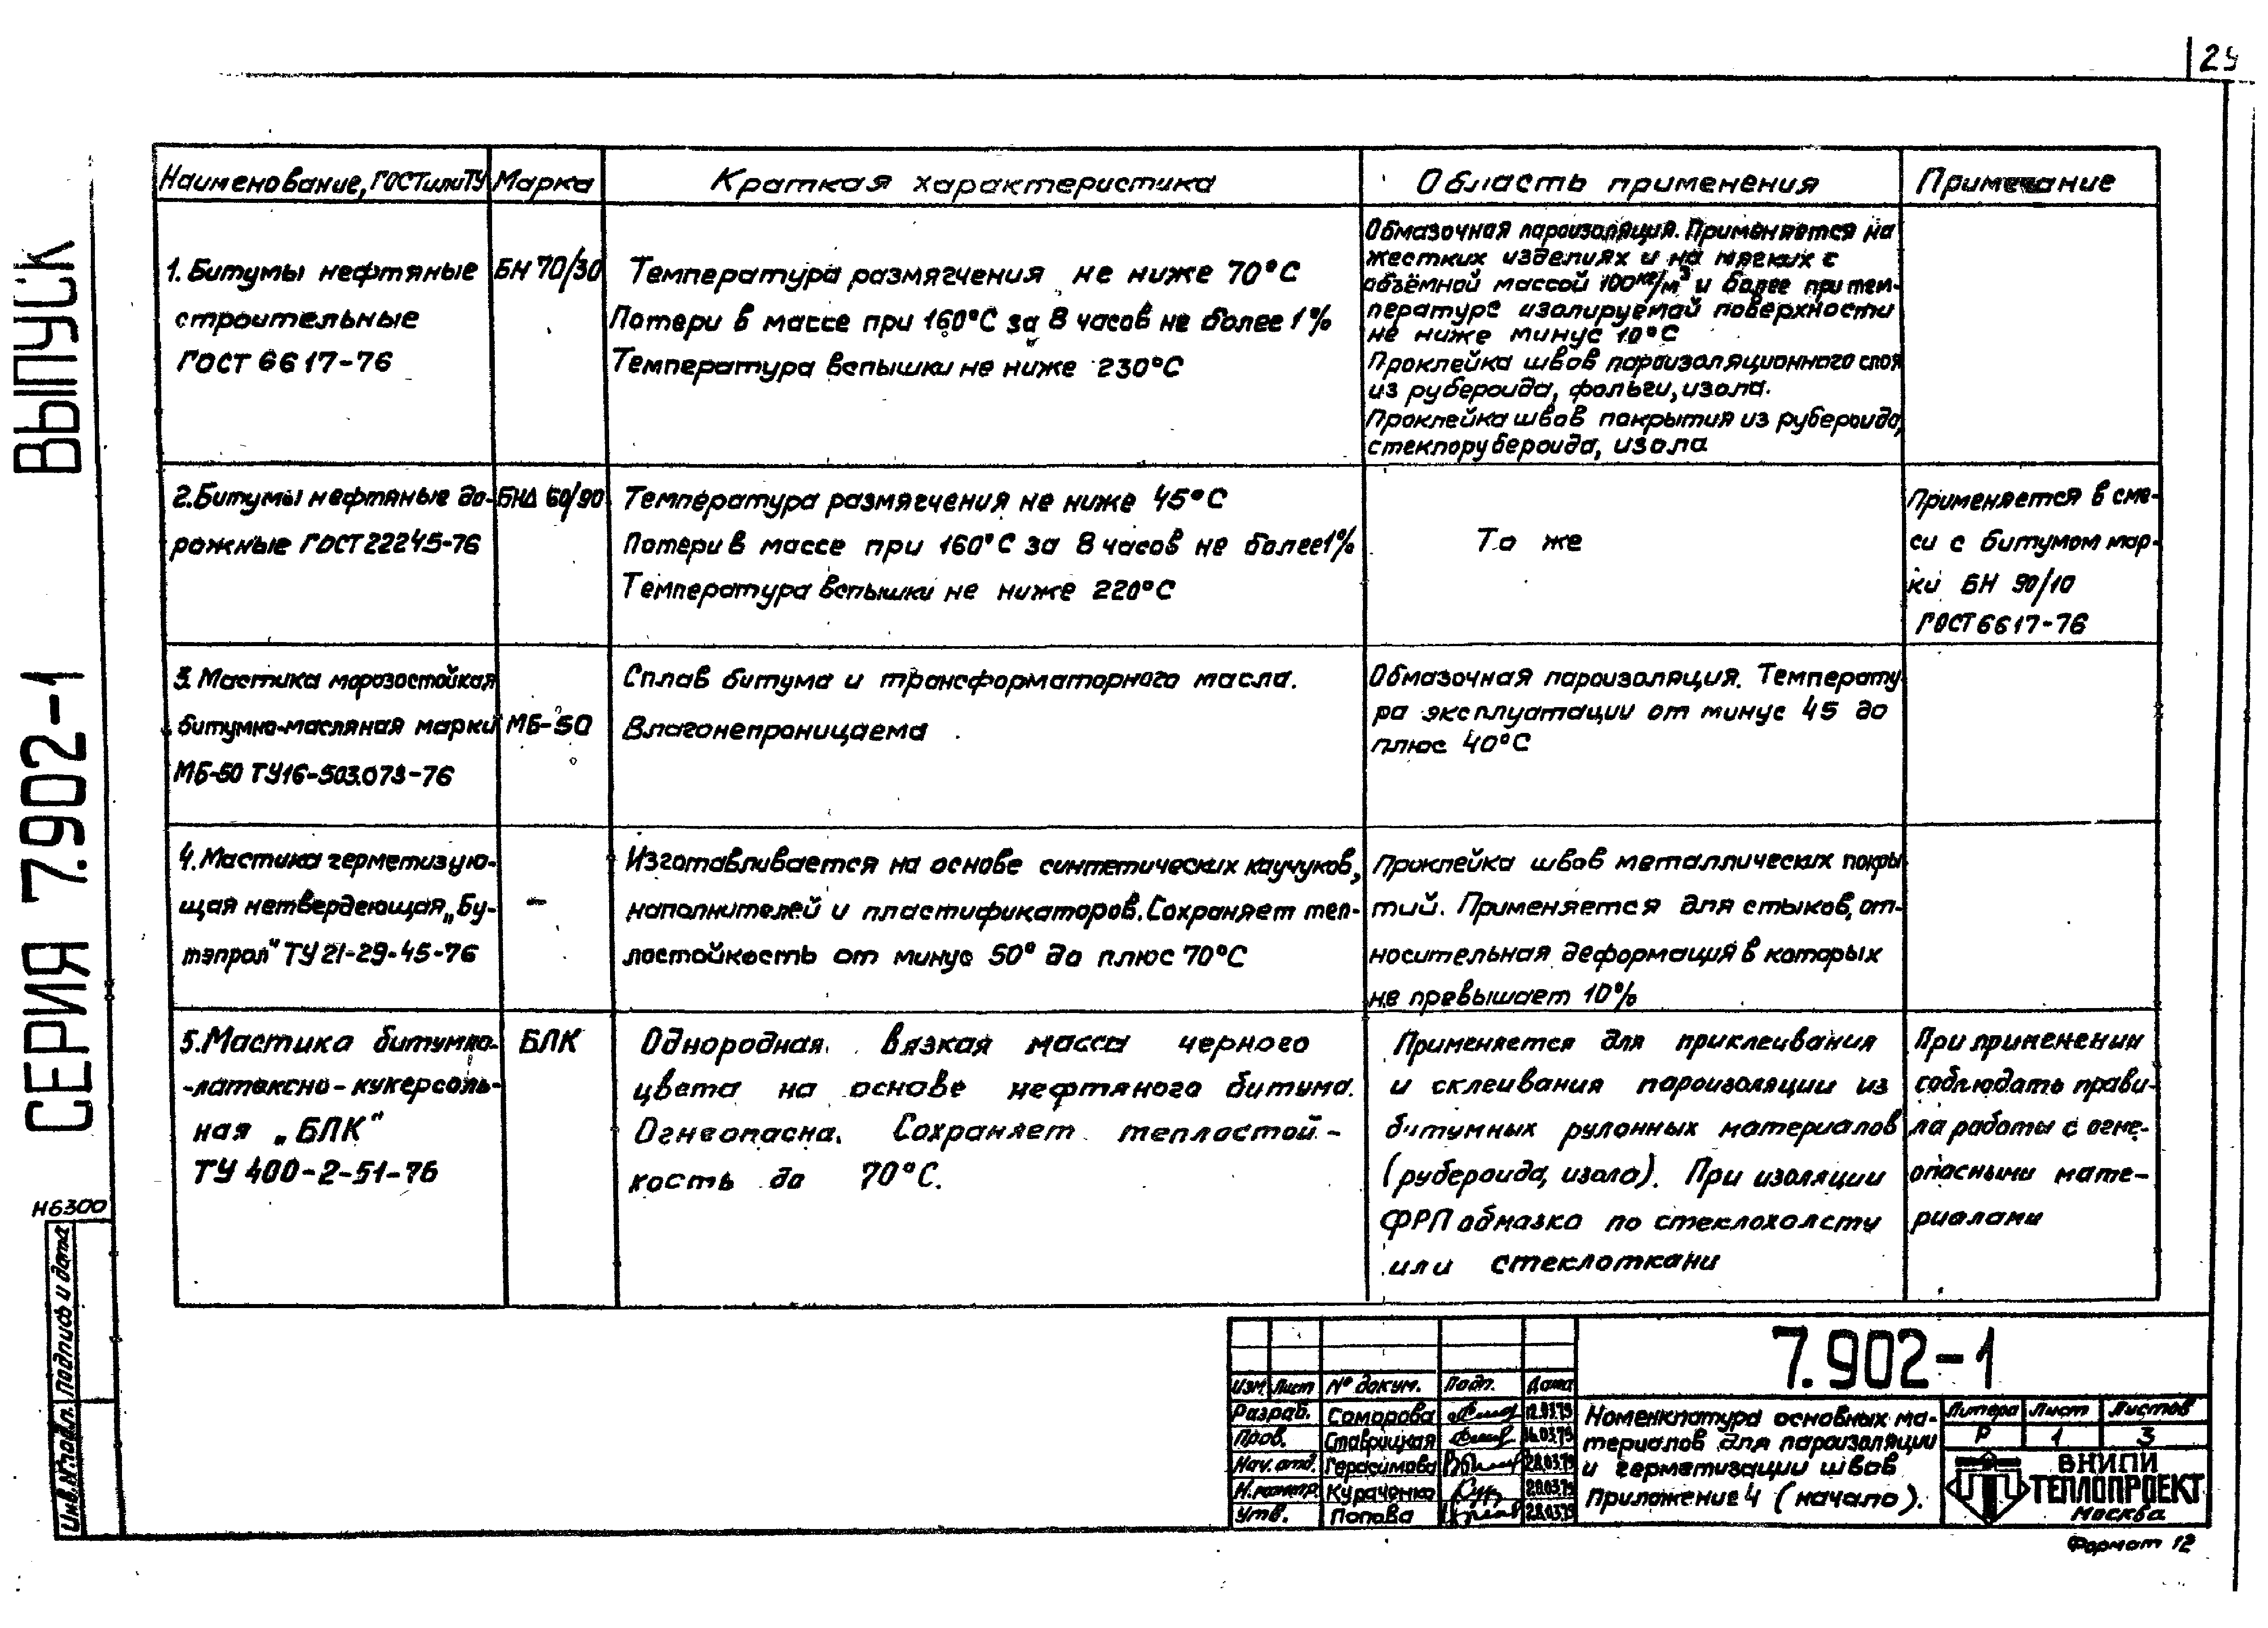 29
Наименование, ГОСТ или ТУ
Марка
Краткая характеристика
Область применения
Примечание
1. Битумы нефтяные
строительные
ГОСТ 6617-76
БН 70/30
Температура размягчения не ниже 70°С
Потери в массе при 160°С за 8 часов не более 1%
Температура вспышки не ниже 230°С
Обмазочная пароизоляция. Применяется на
жестких изделиях и на мягких с
объёмной массой 100кг/м³ и более при тем-
пературе изолируемой поверхности
не ниже минус 10°С
Проклейка швов пароизоляционного слоя
из рубероида, фольги, изола.
Проклейка швов покрытия из рубероида,
стеклорубероида, изола
2. Битумы нефтяные до-
рожные ГОСТ 22245-76
БНД 60/90
Температура размягчения не ниже 45°С
Потери в массе при 160°С за 8 часов не более 1%
Температура вспышки не ниже 220°С
То же
Применяется в сме-
си с битумом мар-
ки БН 90/10
ГОСТ 6617-76
3. Мастика морозостойкая
битумно-масляная марки
МБ-50 ТУ16-503.073-76
МБ-50
Сплав битума и трансформаторного масла.
Влагонепроницаема
Обмазочная пароизоляция. Температу
ра эксплуатации от минус 45 до
плюс 40°С
4. Мастика герметизую-
щая нетвердеющая „Бу-
тэпрол" ТУ 21-29-45-76
-
Изготавливается на основе синтетических каучуков,
наполнителей и пластификаторов. Сохраняет теп-
лостойкость от минус 50° до плюс 70°С
Проклейка швов металлических покры
тий. Применяется для стыков, от-
носительная деформация в которых
не превышает 10%
5. Мастика битумно-
-латексно-кукерсоль-
ная „БЛК"
ТУ 400-2-51-76
БЛК
Однородная вязкая масса черного
цвета на основе нефтяного битума.
Огнеопасна. Сохраняет теплостой-
кость до 70°С.
Применяется для приклеивания
и склеивания пароизоляции из
битумных рулонных материалов
(рубероида, изола). При изоляции
ФРП обмазка по стеклохолсту
или стеклоткани
При применении
соблюдать прави-
ла работы с огне-
опасными мате-
риалами
СЕРИЯ 7.902-1 ВЫПУСК
Н6300
Инв.№ подл. Подпись и дата
7.902-1
Изм. Лист № докум. Подп. Дата
Разраб. Саморова 12.03.79
Пров. Ставрицкая 16.03.79
Нач. отд. Герасимова 28.03.79
Н. контр. Кураченко 28.03.79
Утв. Попова 28.03.79
Номенклатура основных ма-
териалов для пароизоляции
и герметизации швов
Приложение 4 (начало).
Литера Лист Листов
Р 1 3
ВНИПИ
ТЕПЛОПРОЕКТ
Москва
Формат 12